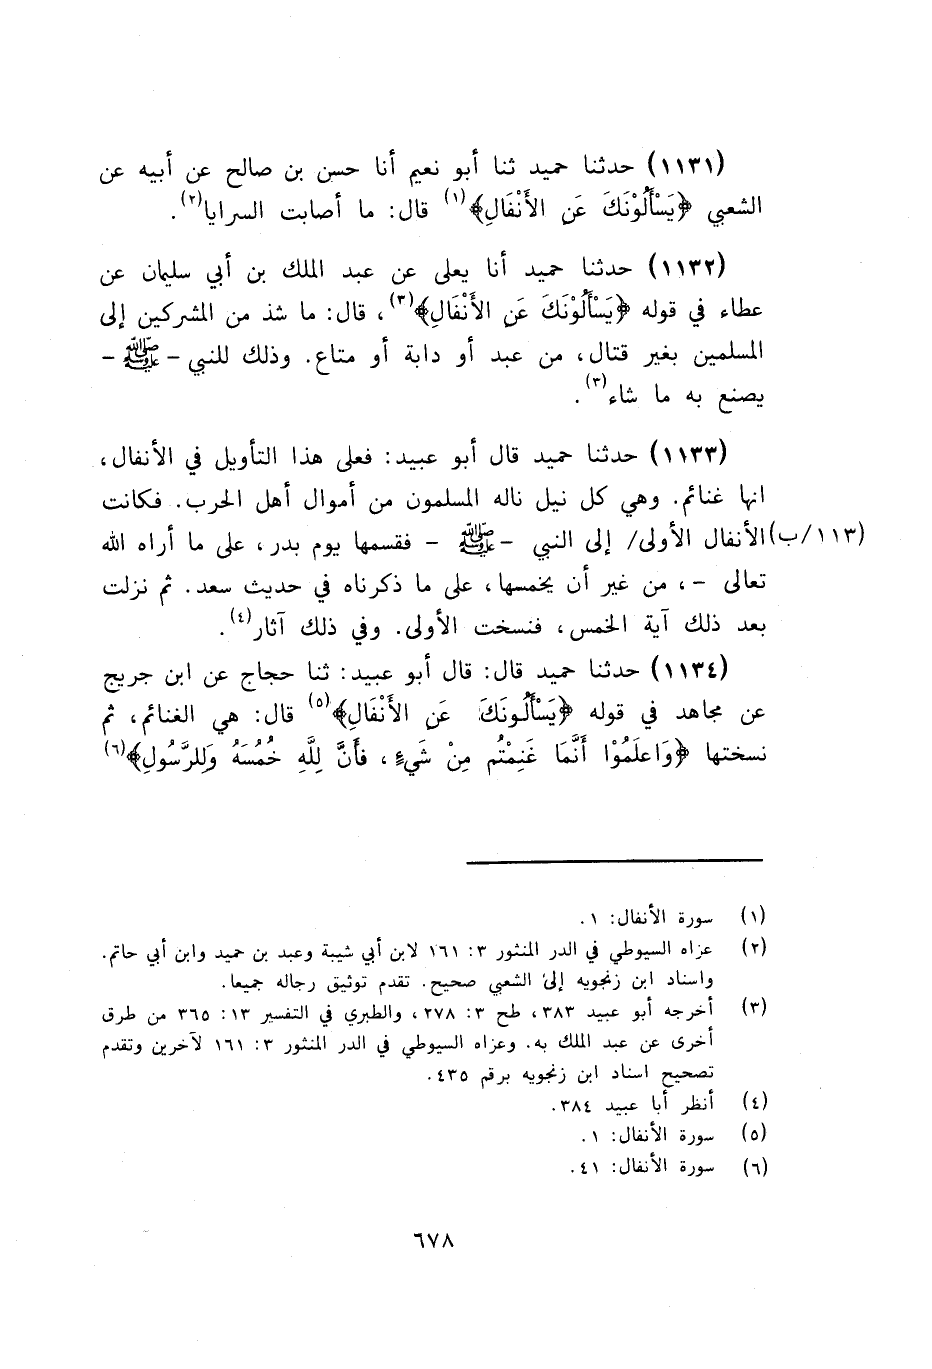 (١١٣١) حدثنا حميد ثنا أبو نعيم أنا حسن بن صالح عن أبيه عن
الشعبي ﴿يَسْأَلُونَكَ عَنِ الأَنْفَالِ﴾(١) قال: ما أصابت السرايا(٢).
(١١٣٢) حدثنا حميد أنا يعلى عن عبد الملك بن أبي سليمان عن
عطاء في قوله ﴿يَسْأَلُوْنَكَ عَنِ الأَنْفَالِ﴾(٣)، قال: ما شذ من المشركين إلى
المسلمين بغير قتال، من عبد أو دابة أو متاع. وذلك للنبي - ﷺ -
يصنع به ما شاء(٣).
(١١٣٣) حدثنا حميد قال أبو عبيد: فعلى هذا التأويل في الأنفال،
انها غنائم. وهي كل نيل ناله المسلمون من أموال أهل الحرب. فكانت
(١١٣/ب) الأنفال الأولى/ إلى النبي - ﷺ - فقسمها يوم بدر، على ما أراه الله
تعالى -، من غير أن يخمسها، على ما ذكرناه في حديث سعد. ثم نزلت
بعد ذلك آية الخمس، فنسخت الأولى. وفي ذلك آثار(٤).
(١١٣٤) حدثنا حميد قال: قال أبو عبيد: ثنا حجاج عن ابن جريج
عن مجاهد في قوله ﴿يَسْأَلُونَكَ عَنِ الأَنْفَالِ﴾(٥) قال: هي الغنائم، ثم
نسختها ﴿وَاعلَمُوْا أَنَّمَا غَنِمْتُم مِنْ شَيءٍ، فأَنَّ لِلَّهِ خُمُسَهُ وَلِلرَّسُولِ﴾(٦)
(١) سورة الأنفال: ١.
(٢) عزاه السيوطي في الدر المنثور ٣: ١٦١ لابن أبي شيبة وعبد بن حميد وابن أبي حاتم.
واسناد ابن زنجويه إلى الشعبي صحيح. تقدم توثيق رجاله جميعا.
(٣) أخرجه أبو عبيد ٣٨٣، طح ٣: ٢٧٨، والطبري في التفسير ١٣: ٣٦٥ من طرق
أخرى عن عبد الملك به. وعزاه السيوطي في الدر المنثور ٣: ١٦١ لآخرين وتقدم
تصحيح اسناد ابن زنجويه برقم ٤٣٥.
(٤) أنظر أبا عبيد ٣٨٤.
(٥) سورة الأنفال: ١.
(٦) سورة الأنفال: ٤١.
٦٧٨